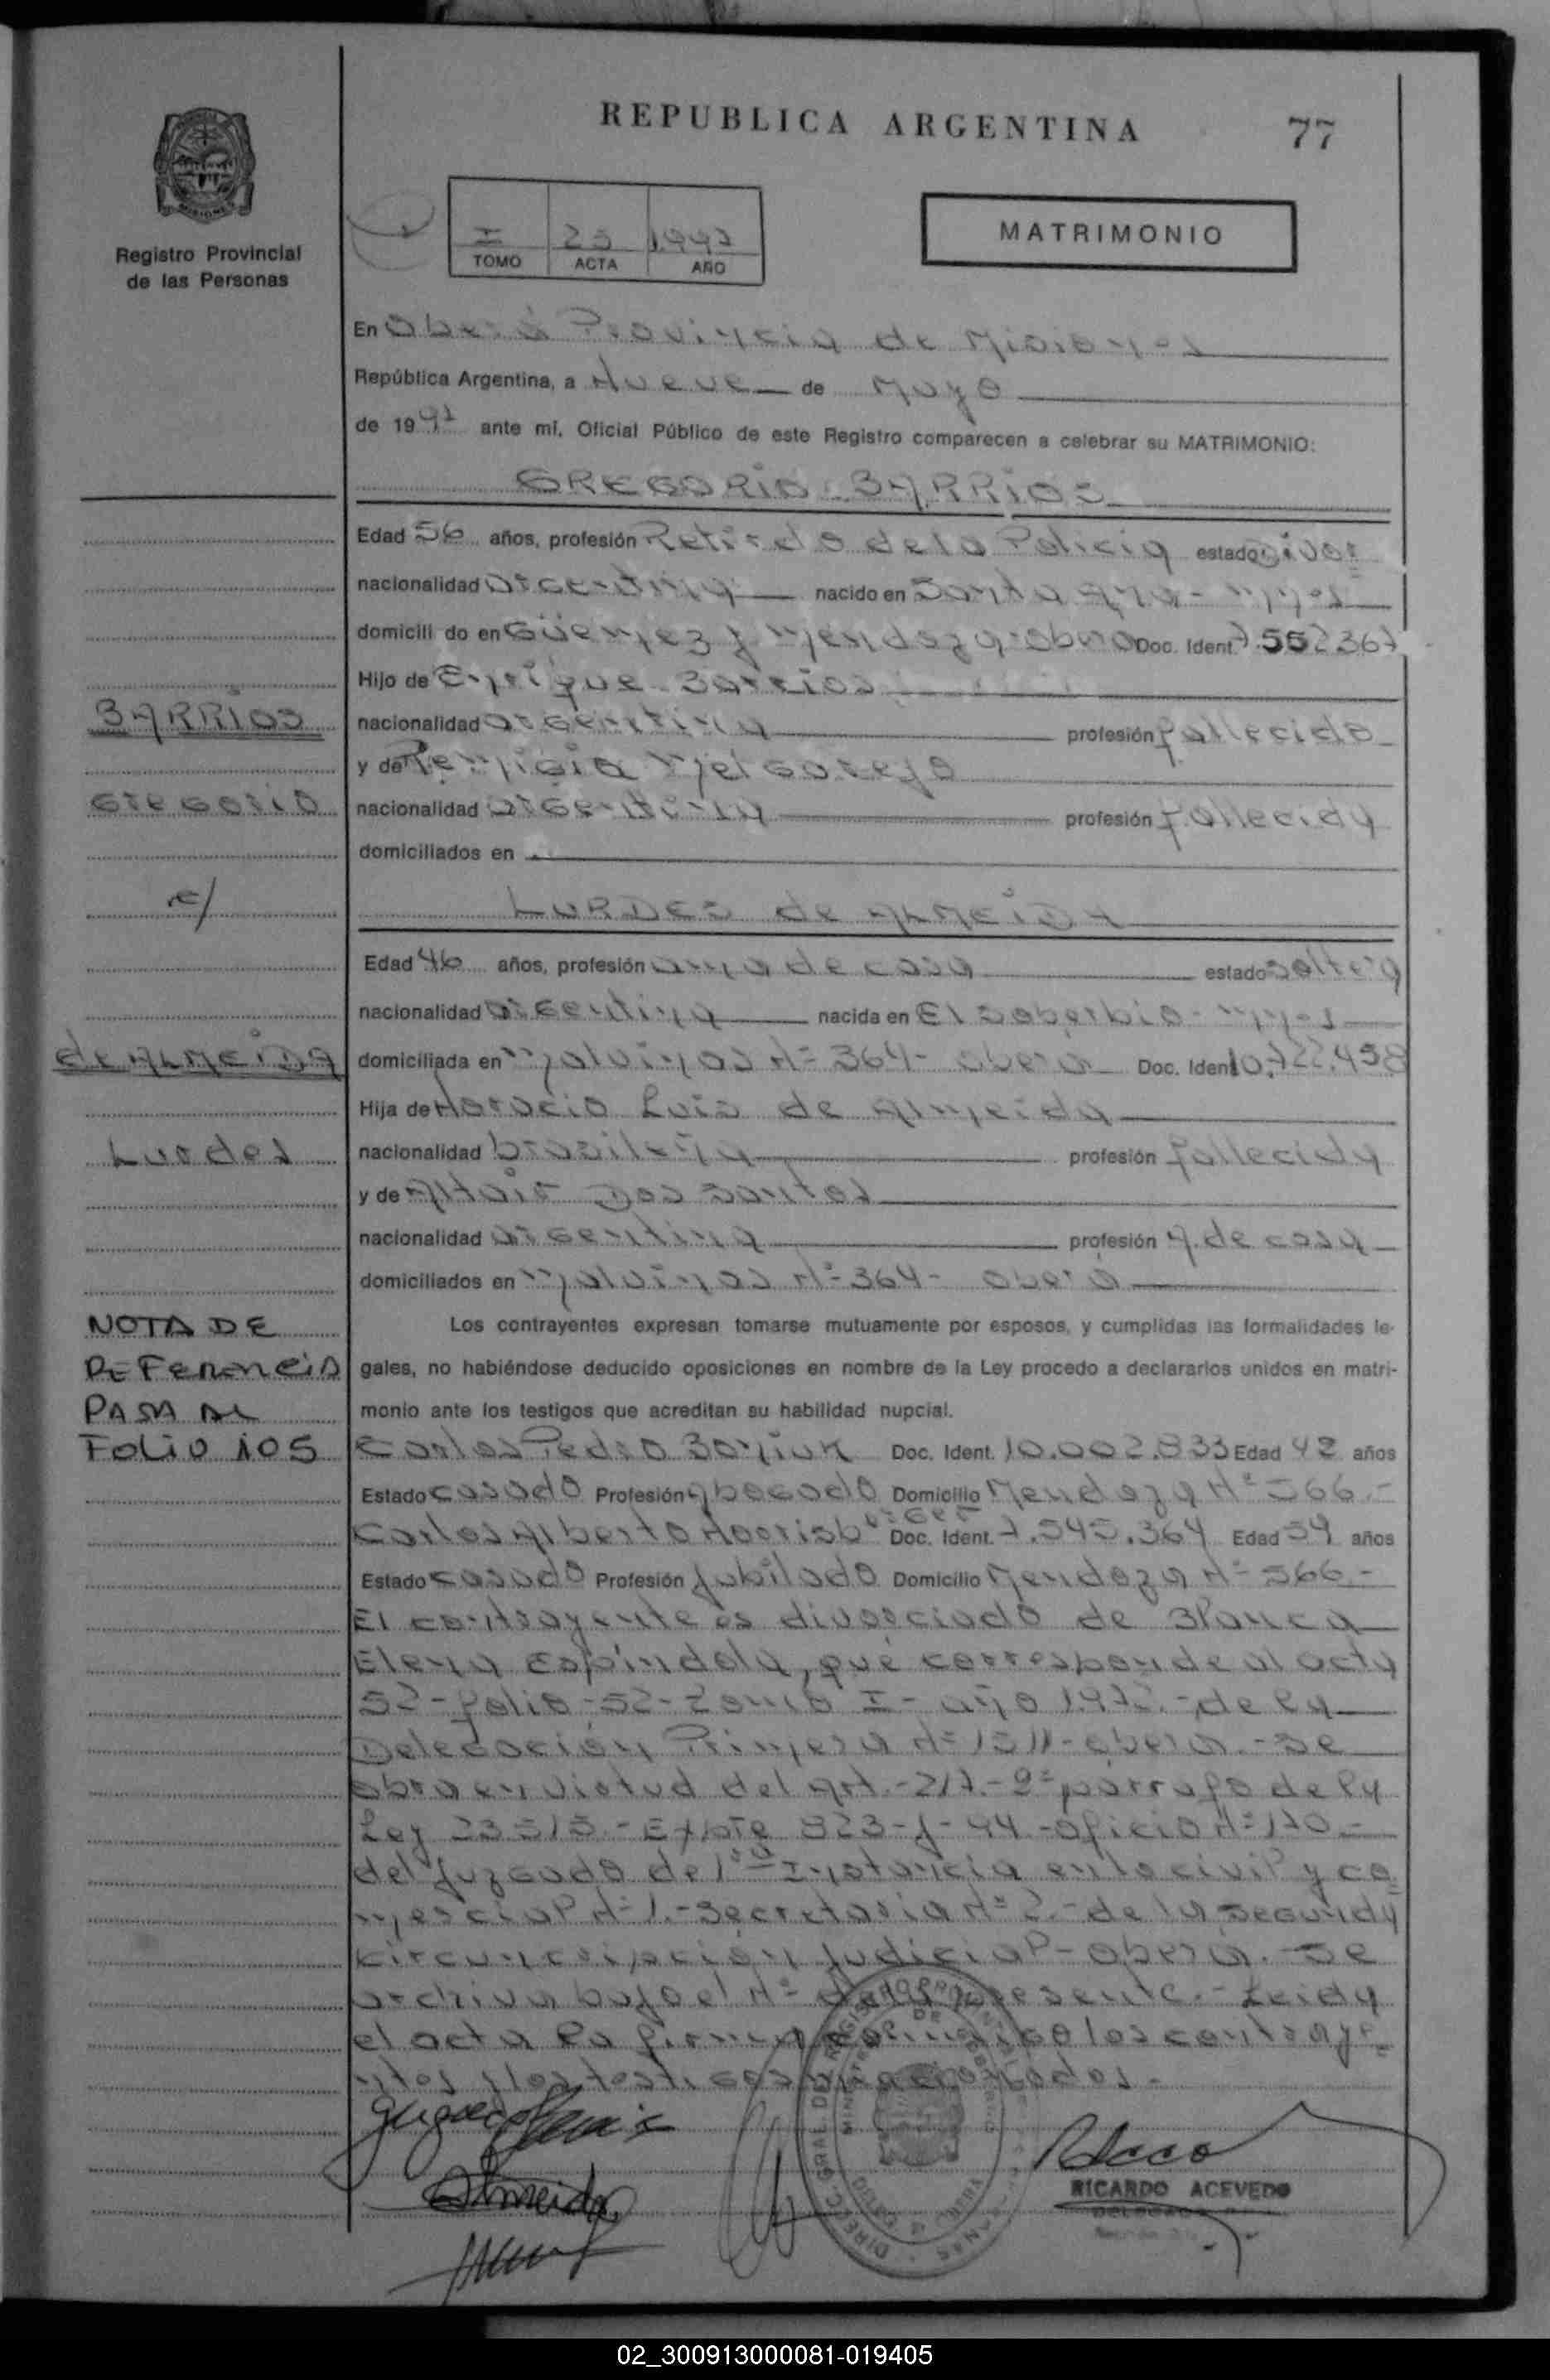 REPUBLICA ARGENTINA
77
MISIONES
Registro Provincial
de las Personas
I 25 1997
TOMO ACTA AÑO
MATRIMONIO
En Oberá Provincia de Misiones
República Argentina, a Nueve de Mayo
de 19 97 ante mí, Oficial Público de este Registro comparecen a celebrar su MATRIMONIO:
GREGORIO BARRIOS
Edad 56 años, profesión Retirado de la Policia estado Divor
nacionalidad argentina nacido en Santa Ana - Mnes
domicili do en Güemez y Mendoza Oberá Doc. Ident. 7.552.367
Hijo de Enrique Barrios
nacionalidad argentina profesión fallecido
y de Remigia Melgarejo
nacionalidad argentina profesión fallecida
domiciliados en
BARRIOS
Gregorio
c/
de ALMEIDA
Lurdes
LURDES de ALMEIDA
Edad 46 años, profesión ama de casa estado soltera
nacionalidad argentina nacida en El Soberbio - Mnes
domiciliada en Malvinas Nº 364 - Oberá Doc. Ident. 10.722.458
Hija de Horacio Luis de Almeida
nacionalidad brasileña profesión fallecida
y de Altair Dos Santos
nacionalidad argentina profesión A. de casa
domiciliados en Malvinas Nº 364 - Oberá
NOTA DE
REFERENCIA
PASA AL
FOLIO 105
Los contrayentes expresan tomarse mutuamente por esposos, y cumplidas las formalidades le-
gales, no habiéndose deducido oposiciones en nombre de la Ley procedo a declararlos unidos en matri-
monio ante los testigos que acreditan su habilidad nupcial.
Carlos Pedro Doc. Ident. 10.002.833 Edad 42 años
Estado casado Profesión Abogado Domicilio Mendoza Nº 566.-
Carlos Alberto Doc. Ident. 7.545.364 Edad 59 años
Estado casado Profesión Jubilado Domicilio Mendoza Nº 566.-
El contrayente es divorciado de Blanca
Elena Espindola, que corresponde al acta
52 - folio - 52 - Tomo I - año 1.972.- de la
Delegación Primera Nº 1511 - Oberá.- Se
obra en virtud del Art.- 217.- 2º párrafo de la
Ley 23515.- Expte 823-J-94.- Oficio Nº 170.-
del Juzgado de 1ra Instancia en lo civil y co
mercial Nº 1.- Secretaria Nº 2.- de la Segunda
circunscripción Judicial - Oberá.- Se
archiva bajo el Nº de la presente.- Leida
el acta la firman conmigo los contraye
ntes y los testigos mencionados.-
RICARDO ACEVEDO
02_300913000081-019405